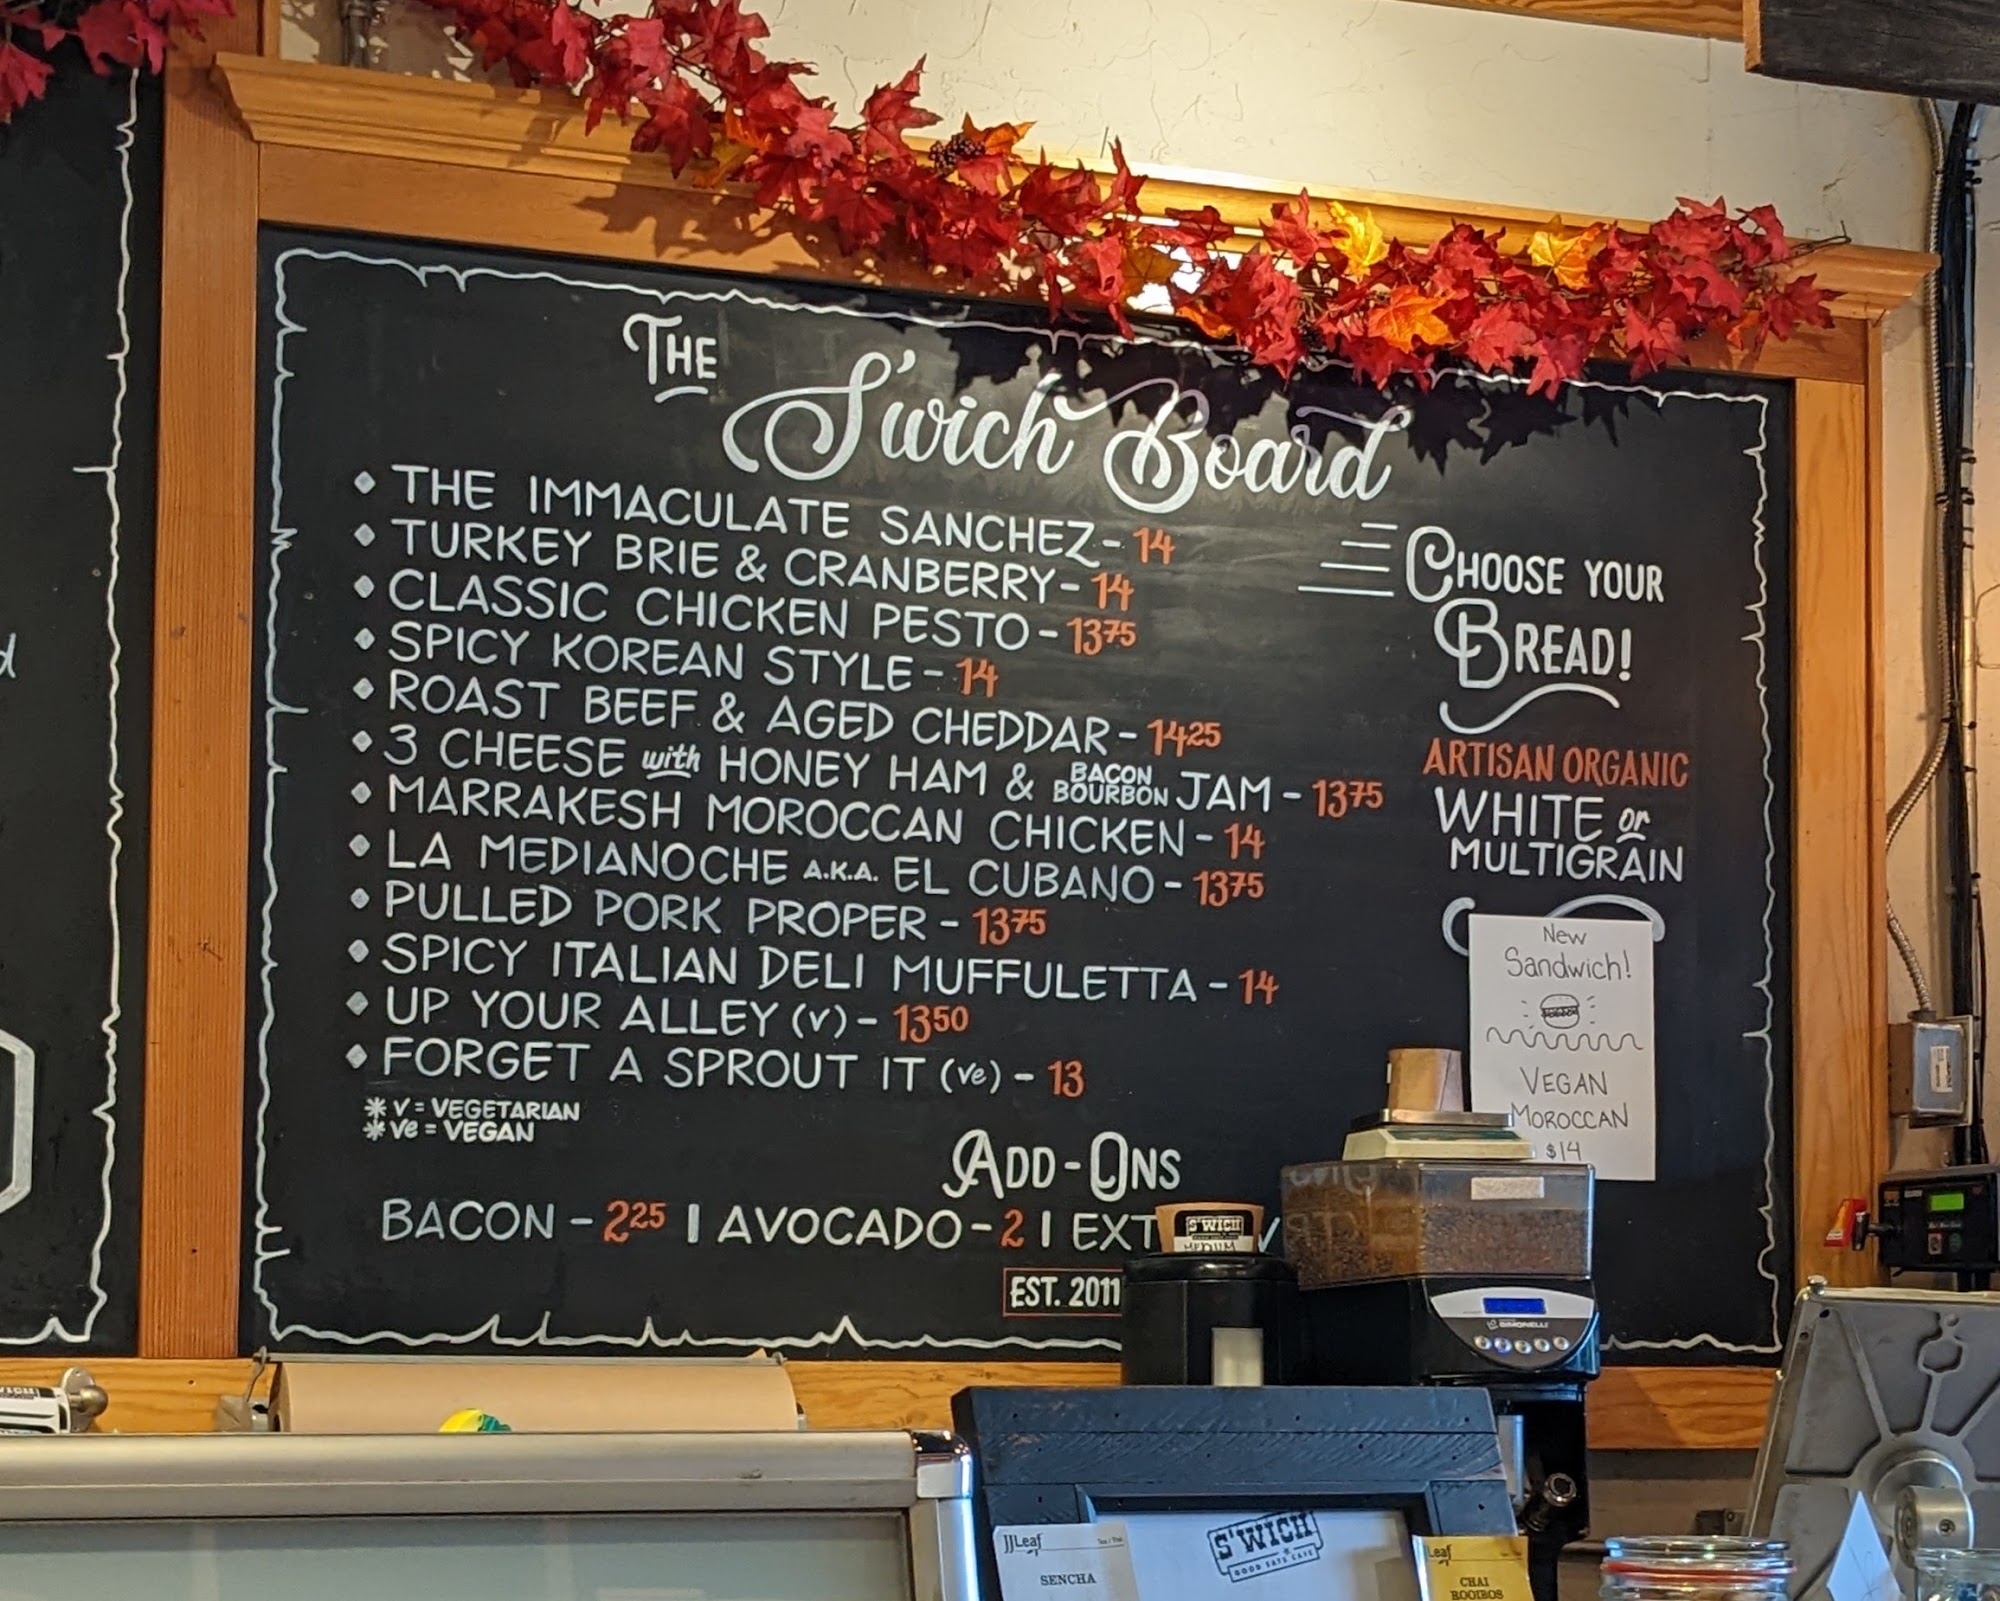 THE
S'wich Board
THE IMMACULATE SANCHEZ - 14
TURKEY BRIE & CRANBERRY - 14
CLASSIC CHICKEN PESTO - 13 75
SPICY KOREAN STYLE - 14
ROAST BEEF & AGED CHEDDAR - 14 25
3 CHEESE with HONEY HAM & BACON BOURBON JAM - 13 75
MARRAKESH MOROCCAN CHICKEN - 14
LA MEDIANOCHE A.K.A. EL CUBANO - 13 75
PULLED PORK PROPER - 13 75
SPICY ITALIAN DELI MUFFULETTA - 14
UP YOUR ALLEY (V) - 13 50
FORGET A SPROUT IT (ve) - 13
* V = VEGETARIAN
* ve = VEGAN
CHOOSE YOUR
BREAD!
ARTISAN ORGANIC
WHITE or
MULTIGRAIN
New
Sandwich!
VEGAN
MOROCCAN
$14
ADD-ONS
BACON - 2 25 | AVOCADO - 2 | EXT
EST. 2011
S'WICH
MEDIUM
SIMONELLI
JJLeaf
SENCHA
S'WICH
GOOD EATS CAFE
Leaf
CHAI
ROOIBOS